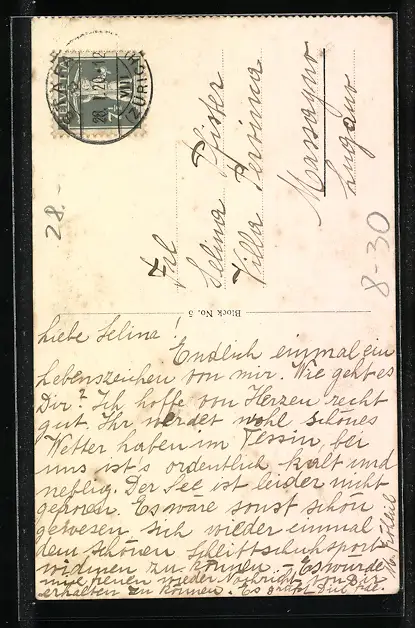 28.-
8-30
Frl
Selina Pfister
Villa Pervinia
Massagno
Lugano
Block No. 5
Liebe Selina!
Endlich einmal ein
Lebenszeichen von mir. Wie geht es
Dir? Ich hoffe von Herzen recht
gut. Ihr werdet wohl schönes
Wetter haben im Tessin, bei
uns ist's ordentlich kalt und
neblig. Der See ist leider nicht
gefroren. Es wäre sonst schön
gewesen sich wieder einmal
dem schönen Schlittschuhsport
widmen zu können. - Es würde
mich freuen wieder Nachricht von Dir
erhalten zu können. Es grüßt Dich
(ZÜRICH)
28. I. 20 - 12
VIII
7½